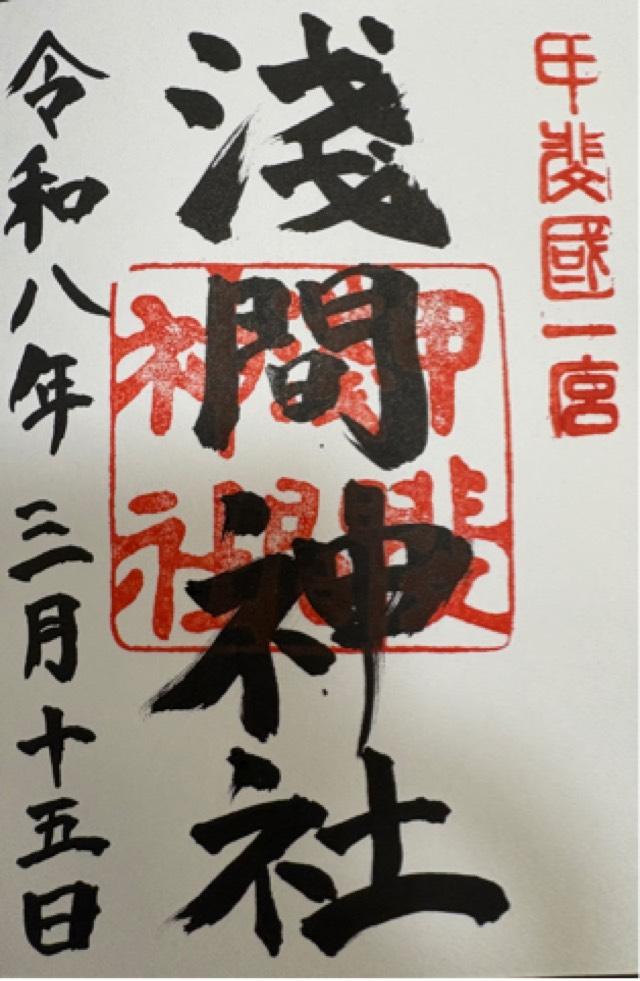 甲斐國一宮
淺間神社
甲斐
神社
令和八年三月十五日